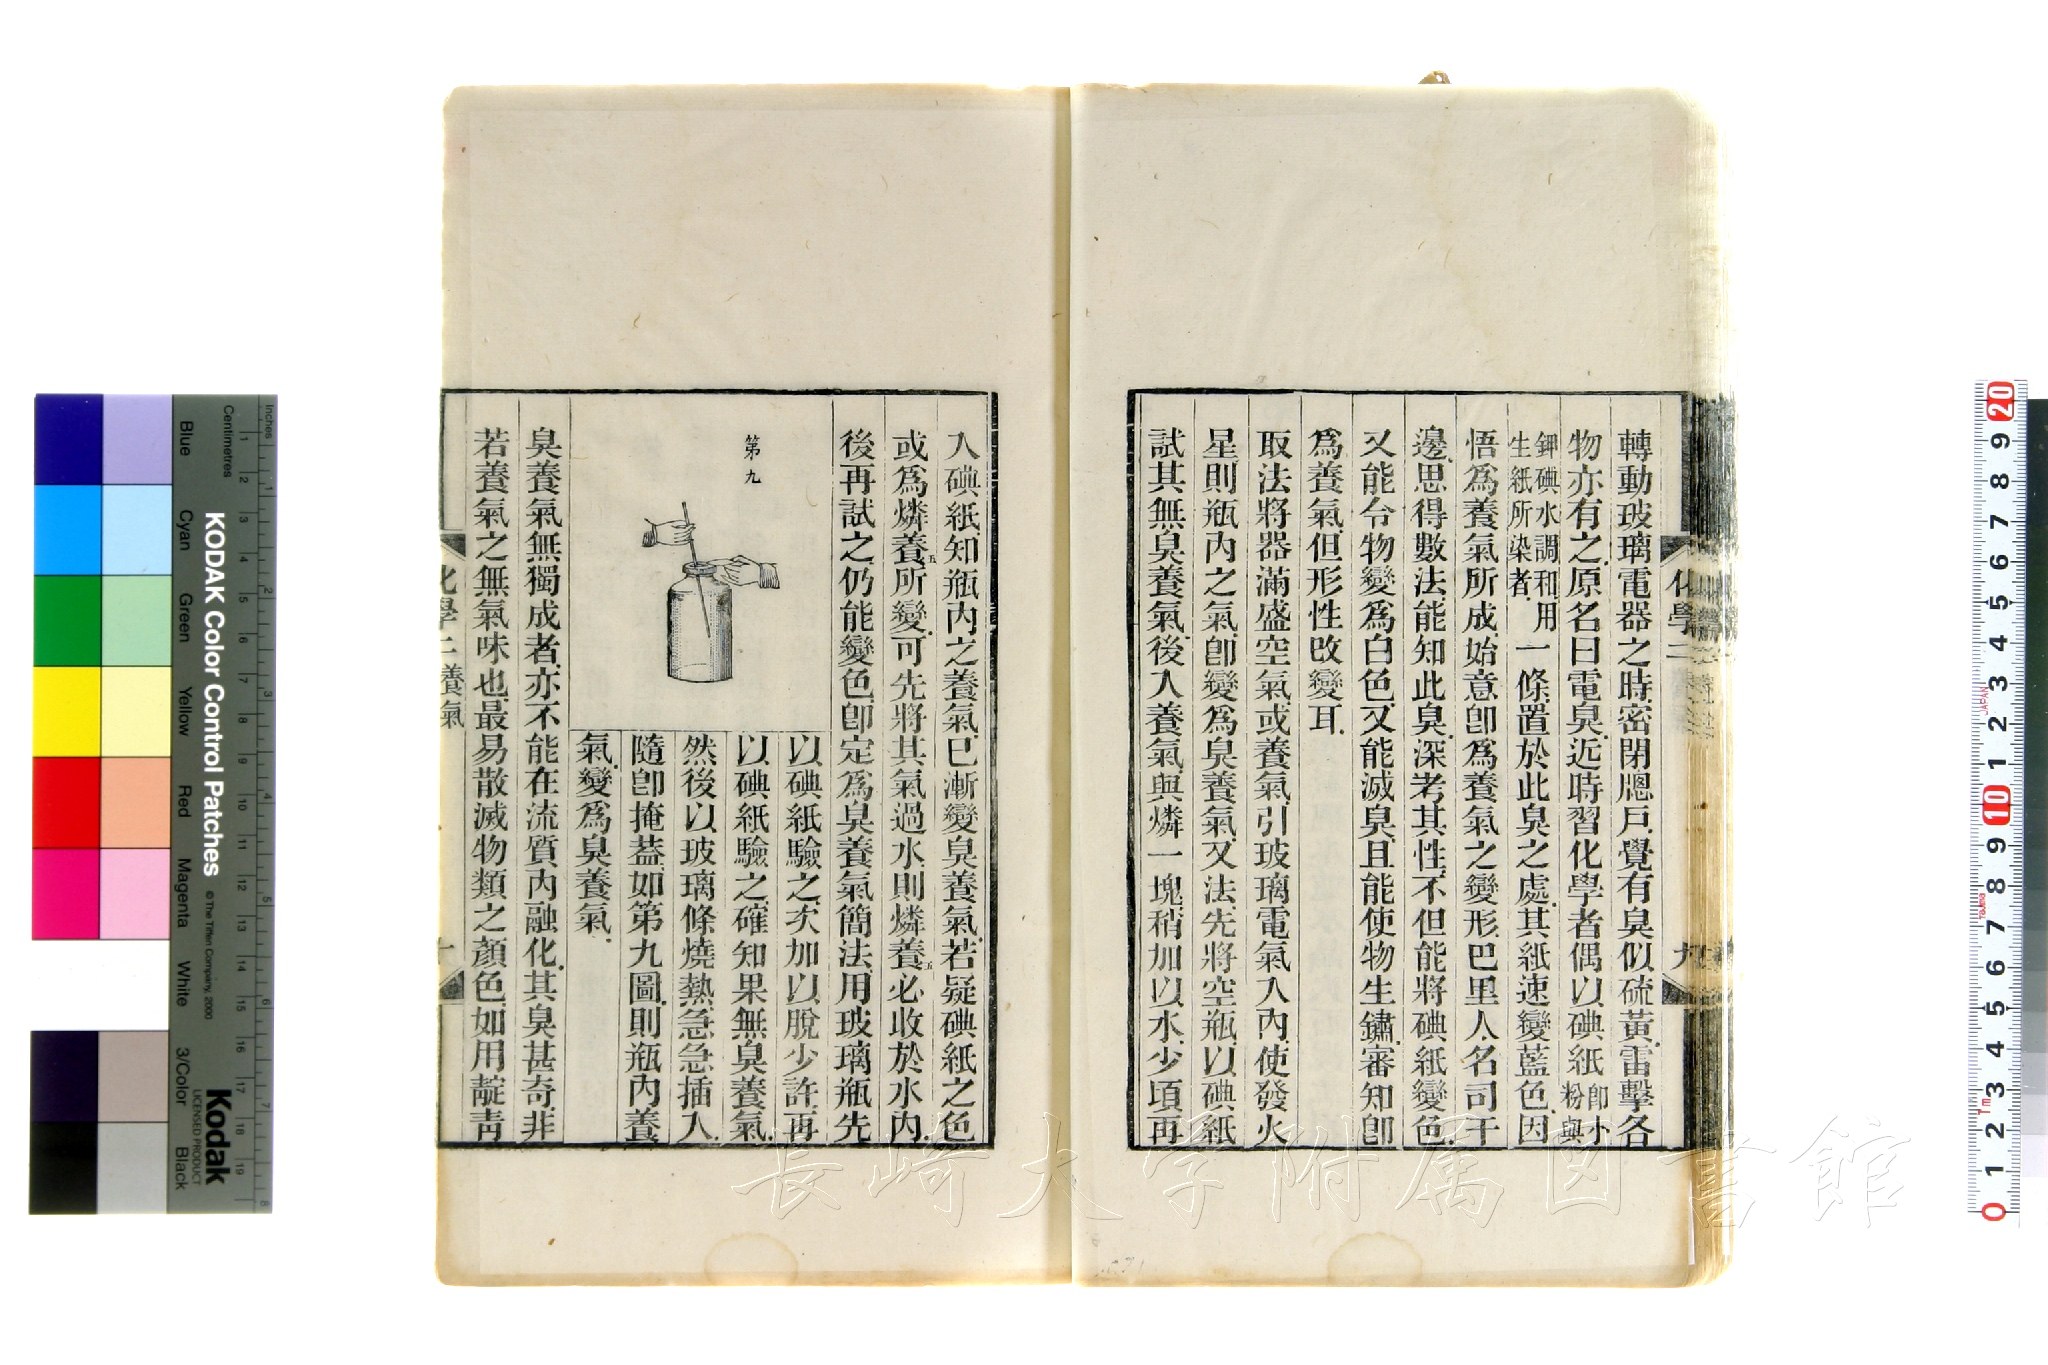 轉動玻璃電器之時密閉牎戶覺有臭似硫黃雷擊各
物亦有之原名曰電臭近時習化學者偶以碘紙卽小粉與
鉀碘水調和用生紙所染者一條置於此臭之處其紙速變藍色因
悟爲養氣所成始意卽爲養氣之變形巴里人名司干
邊思得數法能知此臭深考其性不但能將碘紙變色
又能令物變爲白色又能滅臭且能使物生鏽審知卽
爲養氣但形性改變耳
取法將器滿盛空氣或養氣引玻璃電氣入內使發火
星則瓶內之氣卽變爲臭養氣又法先將空瓶以碘紙
試其無臭養氣後入養氣與燐一塊稍加以水少頃再
化學二
九
入碘紙知瓶內之養氣已漸變臭養氣若疑碘紙之色
或爲燐養五所變可先將其氣過水則燐養五必收於水內
後再試之仍能變色卽定爲臭養氣簡法用玻璃瓶先
第九
以碘紙驗之次加以脫少許再
以碘紙驗之確知果無臭養氣
然後以玻璃條燒熱急急插入
隨卽掩葢如第九圖則瓶內養
氣變爲臭養氣
臭養氣無獨成者亦不能在流質內融化其臭甚奇非
若養氣之無氣味也最易散滅物類之顏色如用靛靑
化學二 養氣
十
長崎大学附属図書館
KODAK Color Control Patches
© The Tiffen Company, 2000
Kodak
LICENSED PRODUCT
Inches
Centimetres
Blue
Cyan
Green
Yellow
Red
Magenta
White
3/Color
Black
1 2 3 4 5 6 7 8
1 2 3 4 5 6 7 8 9 10 11 12 13 14 15 16 17 18 19
20 9 8 7 6 5 4 3 2 1 10 9 8 7 6 5 4 3 2 1 0
JAPAN